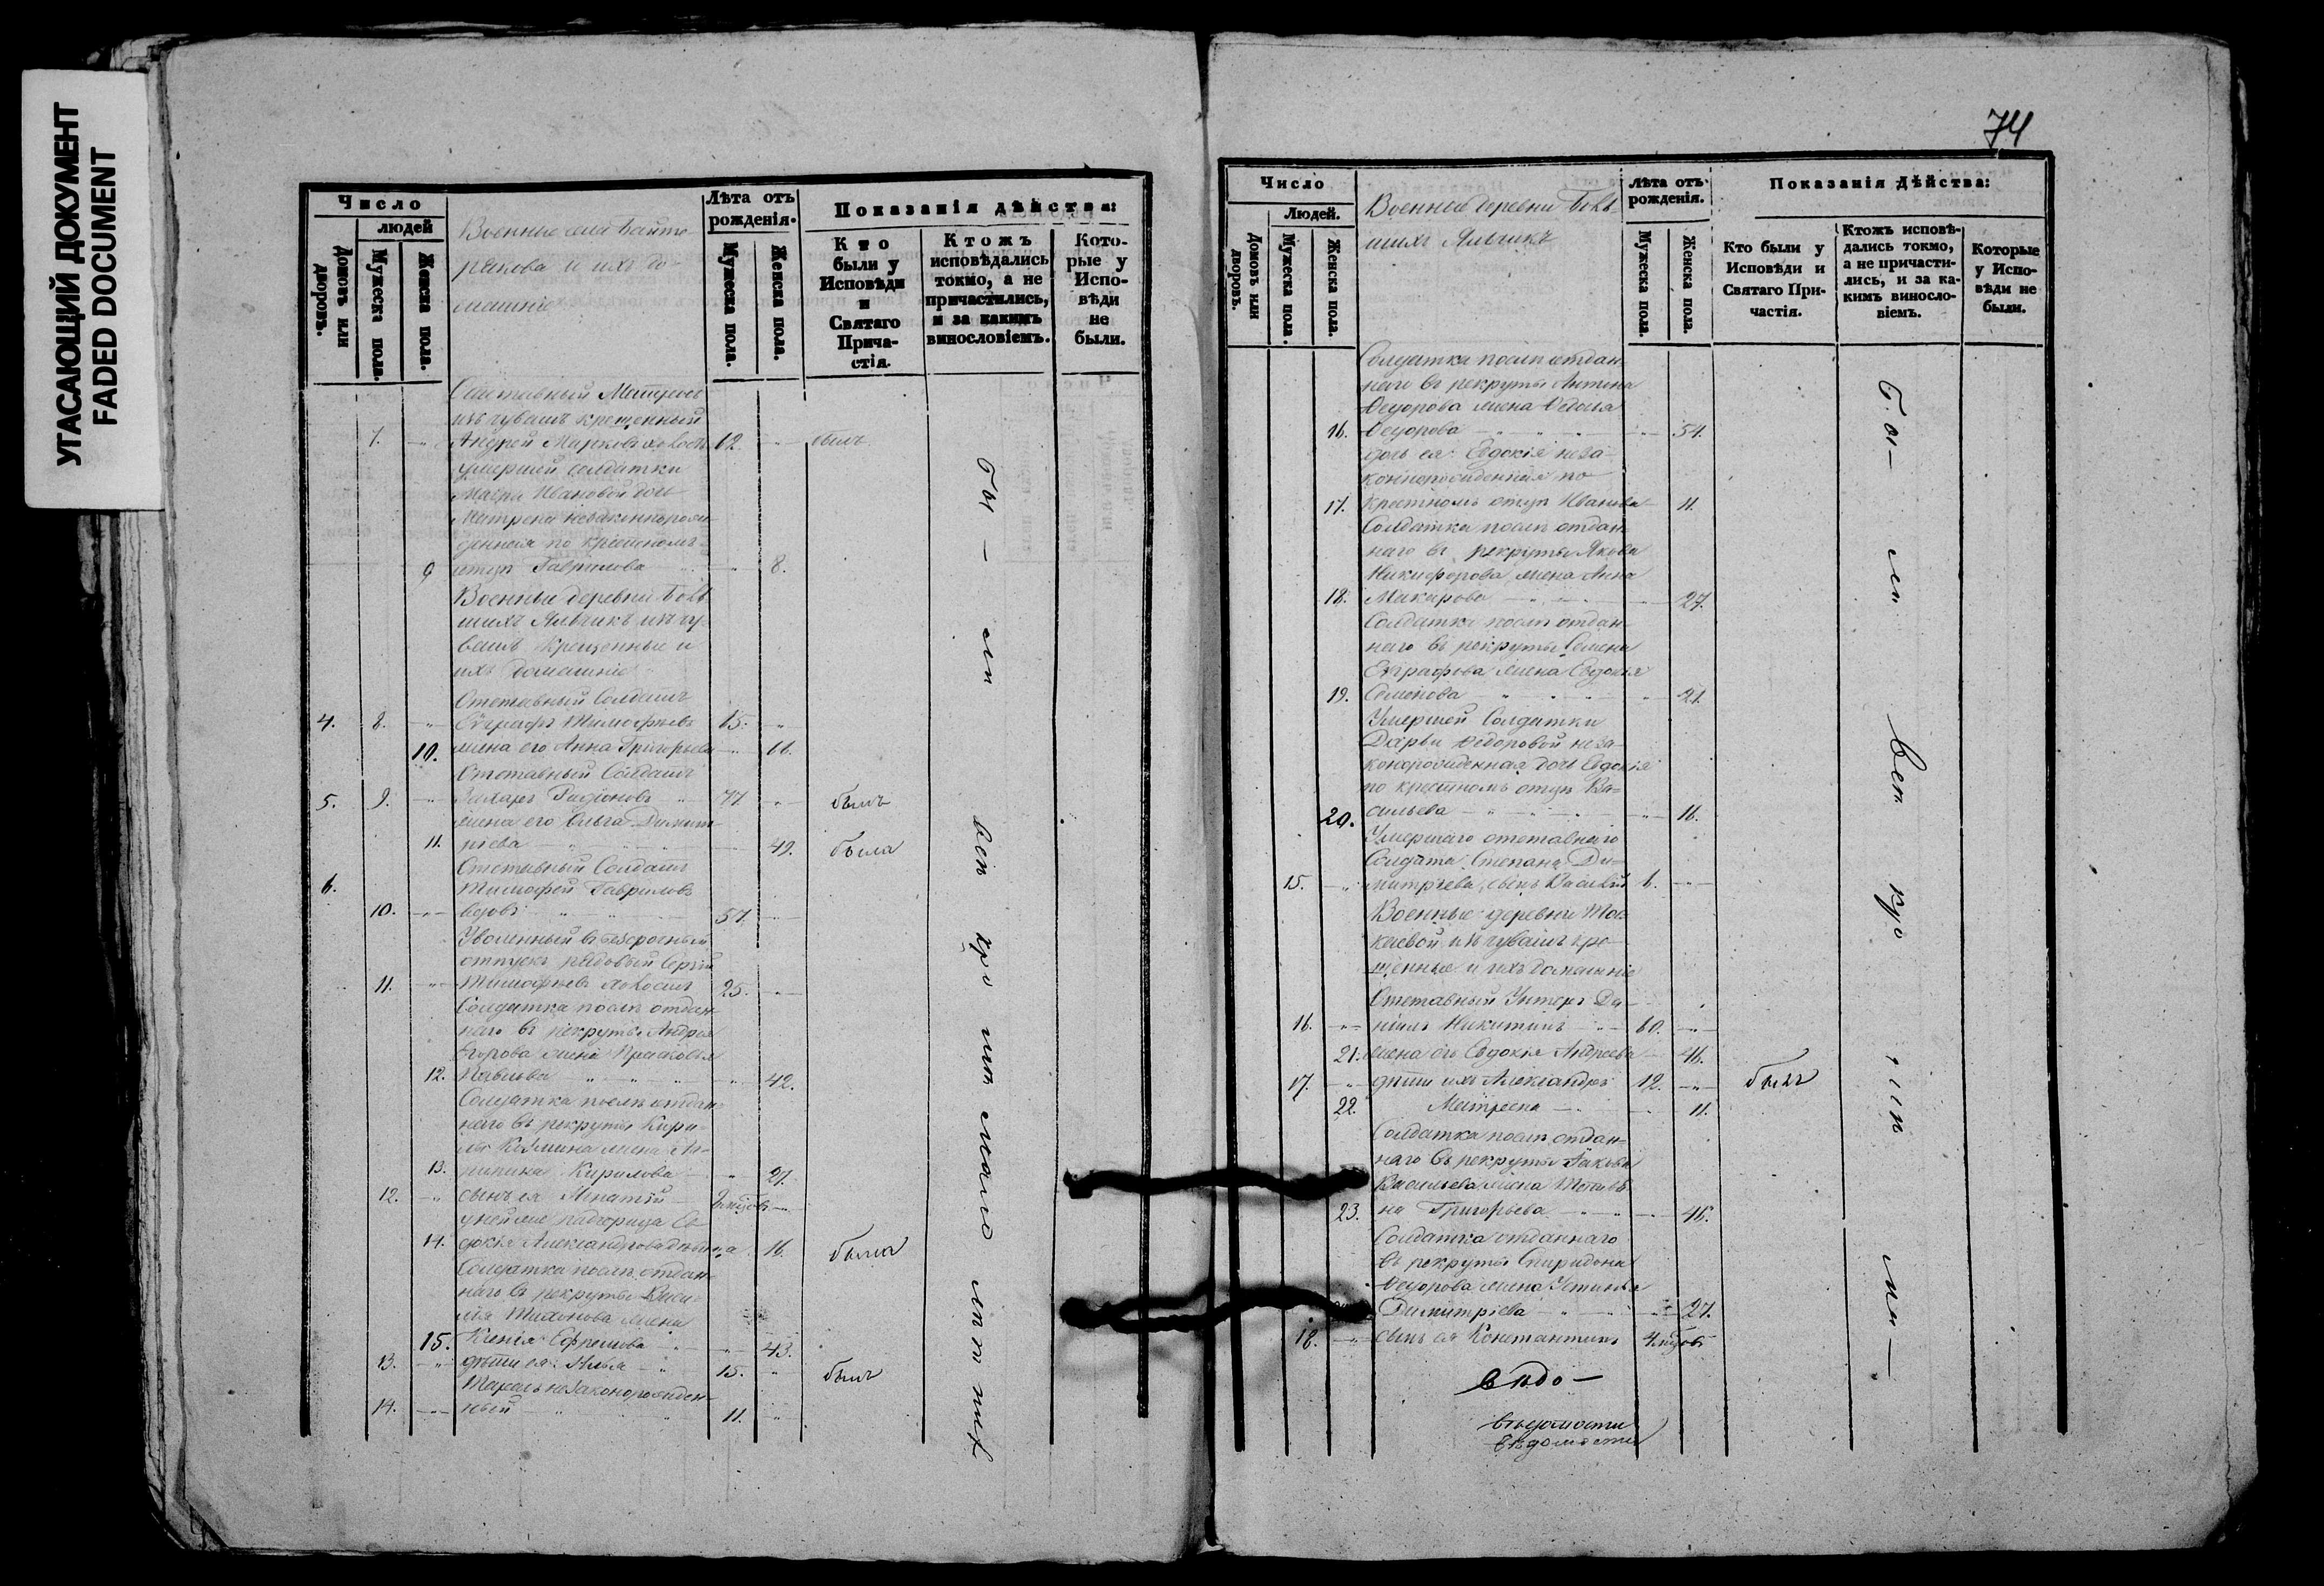 УГАСАЮЩИЙ ДОКУМЕНТ
FADED DOCUMENT
Число
людей
Домовъ или дворовъ.
Мужеска пола.
Женска пола.
Военные села Байте
рякова и ихъ до-
машніе
Лѣта отъ
рожденія.
Мужеска пола.
Женска пола.
Показанія дѣйства:
Кто
были у
Исповѣди
и
Святаго
Прича-
стія.
Ктожъ
исповѣдались
токмо, а не
причастились,
и за какимъ
винословіемъ.
Кото-
рые у
Испо-
вѣди
не
были.
изъ чувашъ крещенный
7. Андрей Марковъ холостъ 62 былъ
умершей солдатки
Ивановой дочь
Матрена незаконнорож-
денная по крестному
9 отцу Гаврилова 8.
Военные деревни Боль
шихъ Яльчикъ изъ чу-
вашъ крещенные и
ихъ домашніе
Отставный Солдатъ
4. 8. Евграфъ Тимофѣевъ
10. жена его Анна Григорьева 66.
Отставный Солдатъ
5. 9. Захаръ Родіоновъ 77. былъ
жена его Ольга Димит-
11. ріева 49. была
Отставный Солдатъ
6. Тимофей Гавриловъ
10. вдовъ 57.
Уволенный въ безсрочный
отпускъ рядовый Сергій
11. Тимофѣевъ холостъ 25.
Солдатка послѣ отдан-
наго въ рекруты Андрея
Егорова жена Прасковья
12. Павлова 42.
Солдатка послѣ отдан-
наго въ рекруты Кири-
ла Козмина жена
13. Кирилова 27.
12. сынъ ея Игнатій
у ней же падчерица Ев-
14. докія Александрова дѣвица 16. была
Солдатка послѣ отдан-
наго въ рекруты Васи-
лія Тихонова жена
15. Ксенія Ефремова 43.
13. дѣти ея: Илья 15. былъ
незаконорожден-
14. ный 11.
бы — ли всѣ кро мѣ мало лѣт нихъ
74
Число
Людей.
Домовъ или дворовъ.
Мужеска пола.
Женска пола.
Военные деревни Боль
шихъ Яльчикъ
Лѣта отъ
рожденія.
Мужеска пола.
Женска пола.
Показанія Дѣйства:
Кто были у
Исповѣди и
Святаго При-
частія.
Ктожъ исповѣ-
дались токмо,
а не причасти-
лись, и за ка-
кимъ виносло-
віемъ.
Которые
у Испо-
вѣди не
были.
Солдатка послѣ отдан-
наго въ рекруты Антона
Ѳедорова жена Ѳедосья
16. Ѳедорова 54.
дочь ея Евдокія неза-
коннорожденная по
17. крестномъ отцѣ Иванова 11.
Солдатка послѣ отдан-
наго въ рекруты Якова
Никифорова жена Анна
18. Макарова 27.
Солдатка послѣ отдан-
наго въ рекруты Семена
Евграфова жена Евдокія
19. Семенова 21.
Умершей Солдатки
Дарьи Ѳедоровой неза-
конорожденная дочь Евдокія
по крестномъ отцѣ Ва-
20. сильева 16.
Умершаго отставнаго
Солдата Степана Ди-
15. митріева, сынъ Василій 6.
Военные деревни
изъ чувашъ кре-
щенные и ихъ домашніе
Отставный Унтеръ Да-
16. ніилъ Никитинъ 60.
21. жена его Евдокія Андреева 46.
17. дѣти ихъ Александръ 12. былъ
22. Матрена 11.
Солдатка послѣ отдан-
наго въ рекруты Якова
Васильева жена
23. на Григорьева 46.
Солдатка отданнаго
въ рекруты Спиридона
Ѳедорова жена Устинья
Димитріева 27.
18. сынъ ея Константинъ
бы — ли всѣ кро
вѣдо —
вѣдомости
вѣдомости